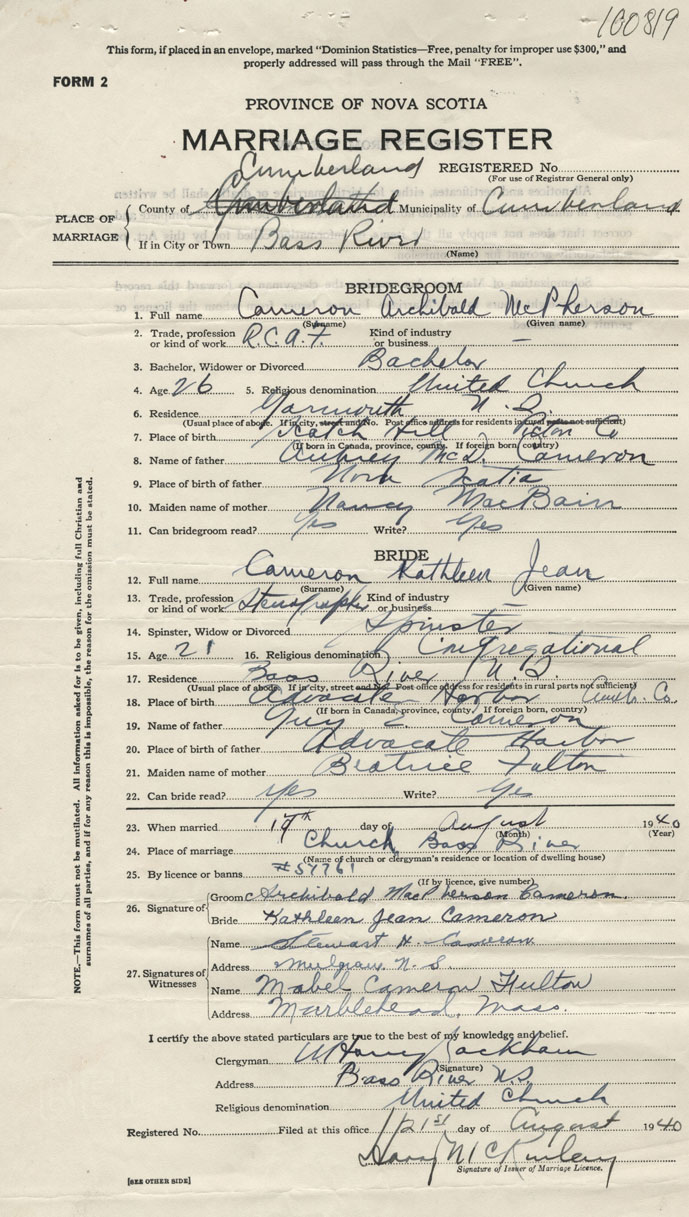 100819
This form, if placed in an envelope, marked "Dominion Statistics—Free, penalty for improper use $300," and
properly addressed will pass through the Mail "FREE".
FORM 2
PROVINCE OF NOVA SCOTIA
MARRIAGE REGISTER
Cumberland REGISTERED No.
(For use of Registrar General only)
PLACE OF MARRIAGE
County of Cumberland Municipality of Cumberland
If in City or Town Bass River
(Name)
BRIDEGROOM
1. Full name Cameron Archibald McPherson
(Surname) (Given name)
2. Trade, profession or kind of work R.C.A.F. Kind of industry or business —
3. Bachelor, Widower or Divorced Bachelor
4. Age 26 5. Religious denomination United Church
6. Residence Yarmouth N.S.
(Usual place of abode. If in city, street and No. Post office address for residents in rural parts not sufficient)
7. Place of birth Scotch Hill Co
(If born in Canada, province, county. If foreign born, country)
8. Name of father Aubrey McD. Cameron
9. Place of birth of father Nova Scotia
10. Maiden name of mother Nancy MacBain
11. Can bridegroom read? Yes Write? Yes
BRIDE
12. Full name Cameron Kathleen Jean
(Surname) (Given name)
13. Trade, profession or kind of work Stenographer Kind of industry or business —
14. Spinster, Widow or Divorced Spinster
15. Age 21 16. Religious denomination Congregational
17. Residence Bass River N.S.
(Usual place of abode. If in city, street and No. Post office address for residents in rural parts not sufficient)
18. Place of birth Advocate Harbor Cumb. Co.
(If born in Canada, province, county. If foreign born, country)
19. Name of father Guy E Cameron
20. Place of birth of father Advocate Harbor
21. Maiden name of mother Beatrice Fulton
22. Can bride read? Yes Write? Yes
23. When married 17th day of August 1940
(Month) (Year)
24. Place of marriage Church Bass River
(Name of church or clergyman's residence or location of dwelling house)
25. By licence or banns #57761
(If by licence, give number)
26. Signature of
Groom Archibald MacPherson Cameron.
Bride Kathleen Jean Cameron
27. Signatures of Witnesses
Name Stewart H. Cameron
Address Mulgrave N.S.
Name Mabel Cameron Fulton
Address Marblehead, Mass.
I certify the above stated particulars are true to the best of my knowledge and belief.
Clergyman Harry Packham
(Signature)
Address Bass River N.S.
Religious denomination United Church
Registered No. Filed at this office 21st day of August 1940
Harry McKinley
Signature of Issuer of Marriage Licence.
[SEE OTHER SIDE]
NOTE.—This form must not be mutilated. All information asked for is to be given, including full Christian and
surnames of all parties, and if for any reason this is impossible, the reason for the omission must be stated.